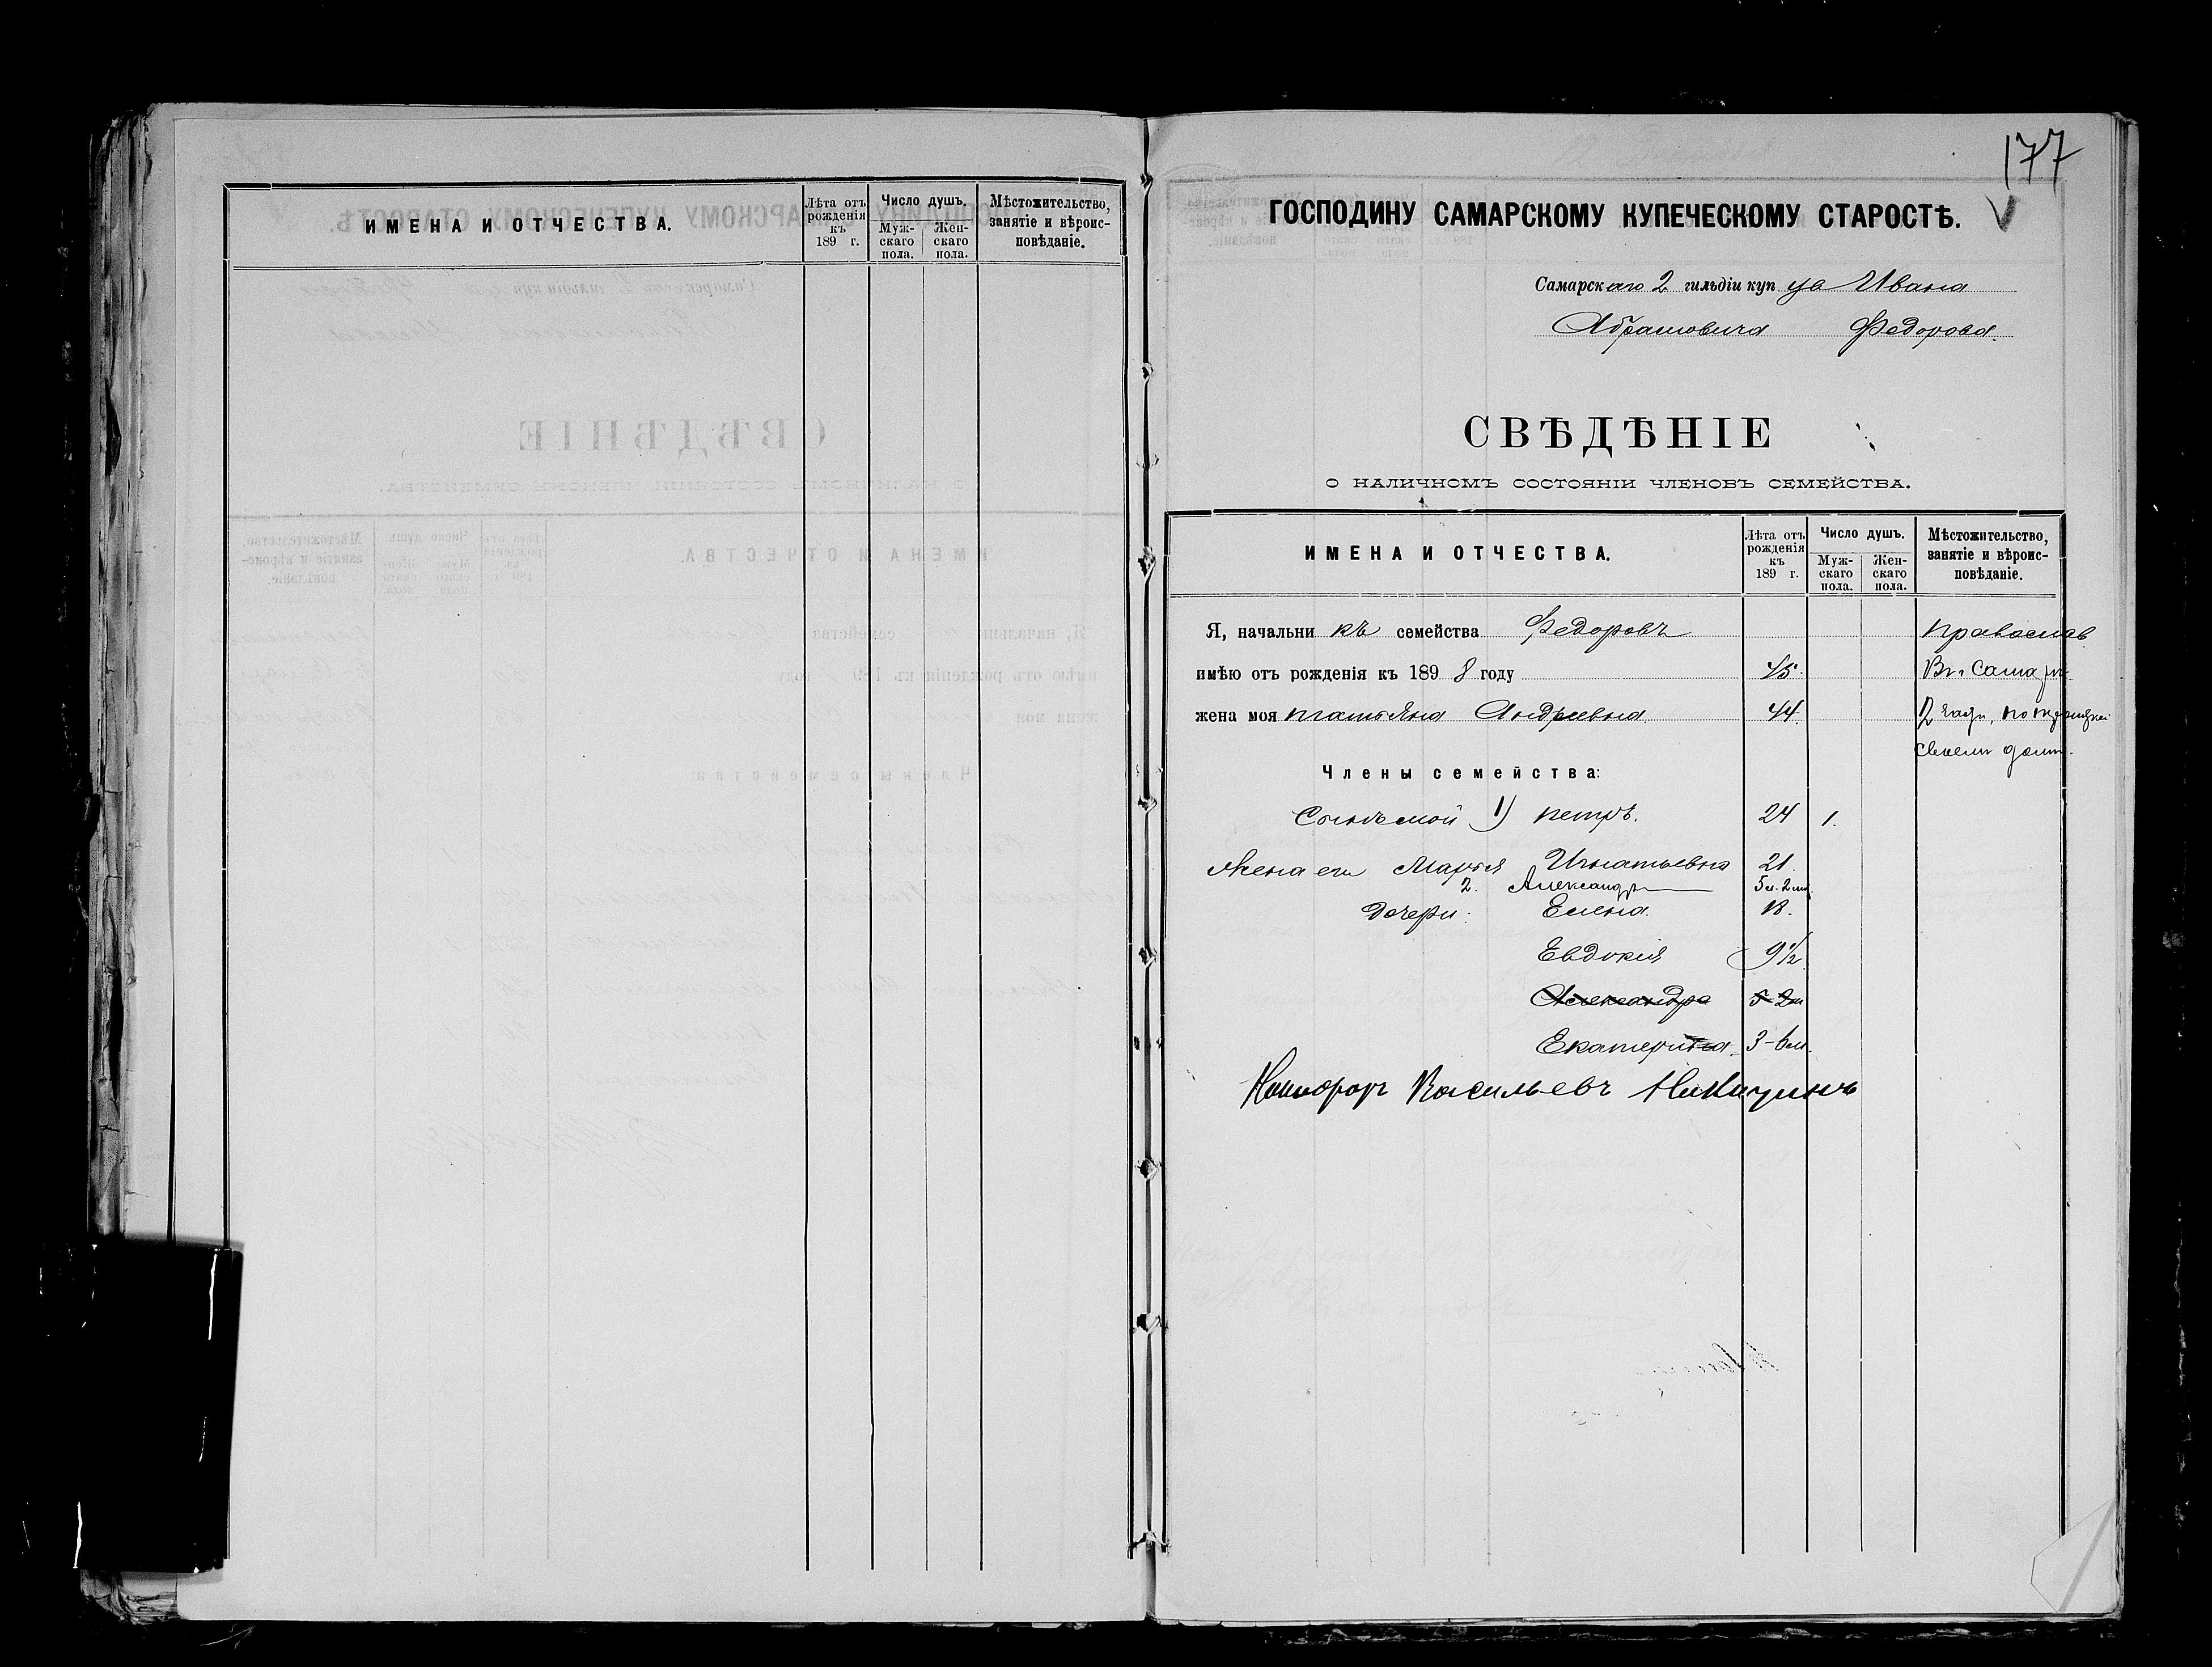 ИМЕНА И ОТЧЕСТВА.
Лѣта отъ рожденія къ 189 г.
Число душъ.
Муж-скаго пола.
Жен-скаго пола.
Мѣстожительство, занятіе и вѣроис-повѣданіе.
177
ГОСПОДИНУ САМАРСКОМУ КУПЕЧЕСКОМУ СТАРОСТѢ.
Самарскаго 2 гильдіи купца Ивана
Абрамовича Федорова.
СВѢДѢНІЕ
О НАЛИЧНОМЪ СОСТОЯНІИ ЧЛЕНОВЪ СЕМЕЙСТВА.
ИМЕНА И ОТЧЕСТВА.
Лѣта отъ рожденія къ 189 г.
Число душъ.
Муж-скаго пола.
Жен-скаго пола.
Мѣстожительство, занятіе и вѣроис-повѣданіе.
Я, начальникъ семейства Федоровъ православ
имѣю отъ рожденія къ 1898 году 45. Въ Самарѣ
жена моя Татьяна Андревна 44. 2 части, по троицкой
своемъ домѣ.
Члены семейства:
Сынъ мой 1) Петръ. 24 1.
Жена его Марья Игнатьевна 21.
2. Александръ 5 л. 2 м.
Дочери: Елена. 12.
Евдокія 9 1/2
Александра 5-2 м
Екатерина 3-6 м.
Никифоръ Васильевъ Никитинъ